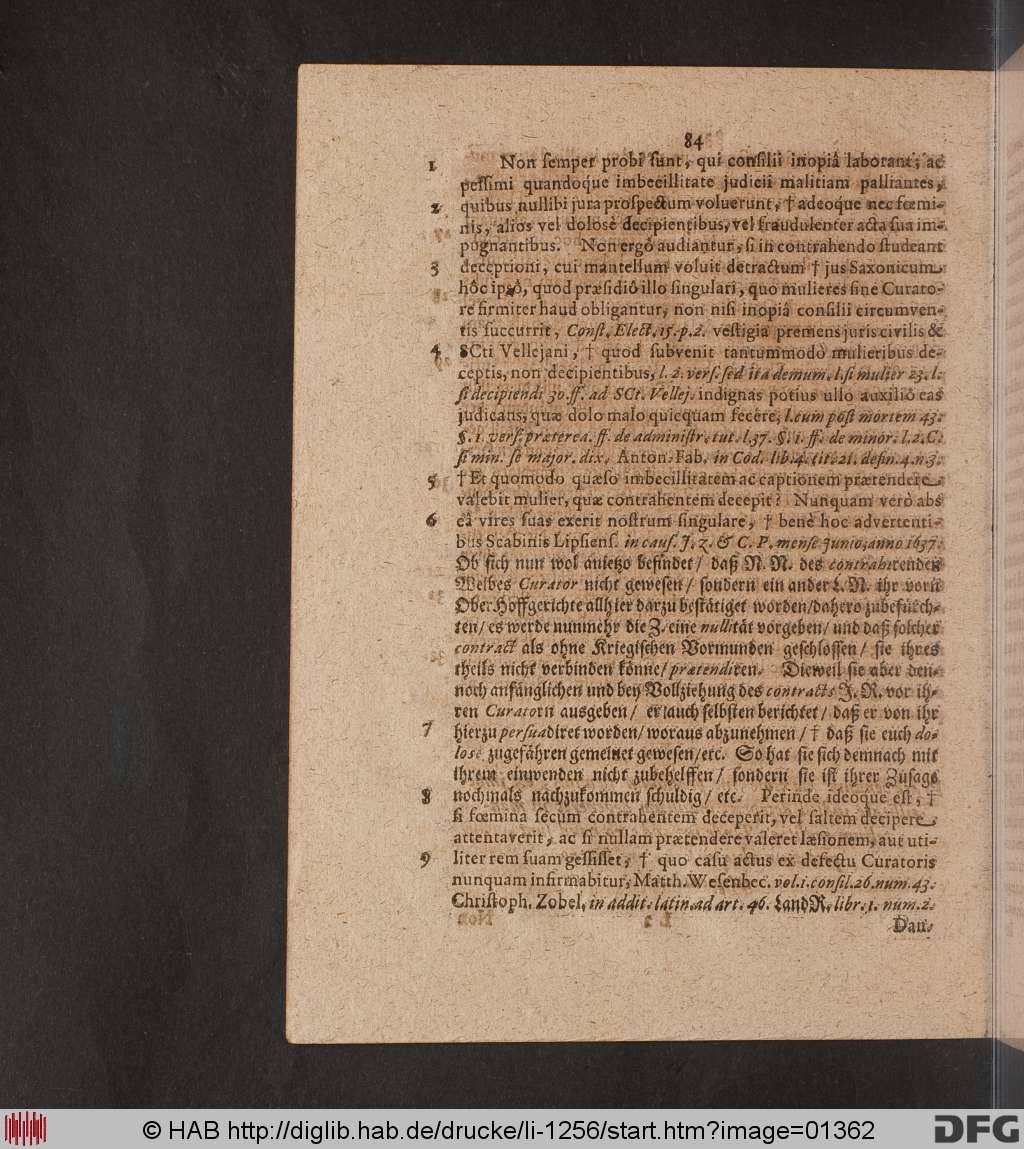 84
1 Non semper probi sunt, qui consilii inopiâ laborant; ac
pessimi quandoque imbecillitate judicii malitiam palliantes,
2 quibus nullibi jura prospectum voluerunt, † adeoque nec fœmi-
nis, alios vel dolosè decipientibus, vel fraudulenter acta sua im-
pugnantibus. Non ergò audiantur, si in contrahendo studeant
3 deceptioni, cui mantellum voluit detractum † jus Saxonicum
hôc ipsô, quod præsidiô illo singulari, quo mulieres sine Curato-
re firmiter haud obligantur, non nisi inopiâ consilii circumven-
tis succurrit, Const. Elect. 15. p. 2. vestigia premens juris civilis &
4 SCti Vellejani, † quod subvenit tantummodò mulieribus de-
ceptis, non decipientibus, l. 2. vers. sed ita demum. l. si mulier 23. l.
si decipiendi 30. ff. ad SCt. Vellej. indignas potius ullo auxiliô eas
judicans, quæ dolo malo quicquam fecère, l. cum post mortem 43.
§. 1. vers. præterea. ff. de administr. tut. l. 37. §. 1. ff. de minor. l. 2. C.
si min. se major. dix. Anton. Fab. in Cod. lib. 4. tit. 21. defin. 4. n. 3.
5 † Et quomodo quæso imbecillitatem ac captionem prætendere
valebit mulier, quæ contrahentem decepit? Nunquam verò abs
6 eâ vires suas exerit nostrum singulare, † benè hoc advertenti-
bus Scabinis Lipsiens. in caus. J. Z. & C. P. mense Junio, anno 1637.
Ob sich nun wol anietzo befindet/ daß N. N. des contrahirenden
Weibes Curator nicht gewesen/ sondern ein ander L. N. ihr vorn
Ober Hoffgerichte allhier darzu bestätiget worden/ dahero zubefürch-
ten/ es werde nunmehr die Z. eine nullität vorgeben/ und daß solcher
contract als ohne Kriegischen Vormunden geschlossen/ sie ihres
theils nicht verbinden könne/ prætendiren. Dieweil sie aber den-
noch anfänglichen und bey Vollziehung des contracts J. R. vor ih-
ren Curatorn ausgeben/ er auch selbsten berichtet/ daß er von ihr
7 hierzu persuadiret worden/ woraus abzunehmen/ † daß sie euch do-
losè zugefähren gemeinet gewesen/ etc. So hat sie sich demnach mit
ihrem einwenden nicht zubehelffen/ sondern sie ist ihrer Zusage
8 nochmals nachzukommen schuldig/ etc. Perinde ideoque est, †
si fœmina secum contrahentem deceperit, vel saltem decipere
attentaverit, ac si nullam prætendere valeret læsionem, aut uti-
9 liter rem suam gessisset, † quo casu actus ex defectu Curatoris
nunquam infirmabitur, Matth. Wesenbec. vol. 1. consil. 26. num. 43.
Christoph. Zobel. in addit. latin. ad art. 46. LandR. libr. 1. num. 2.
Dan.
© HAB http://diglib.hab.de/drucke/li-1256/start.htm?image=01362
DFG